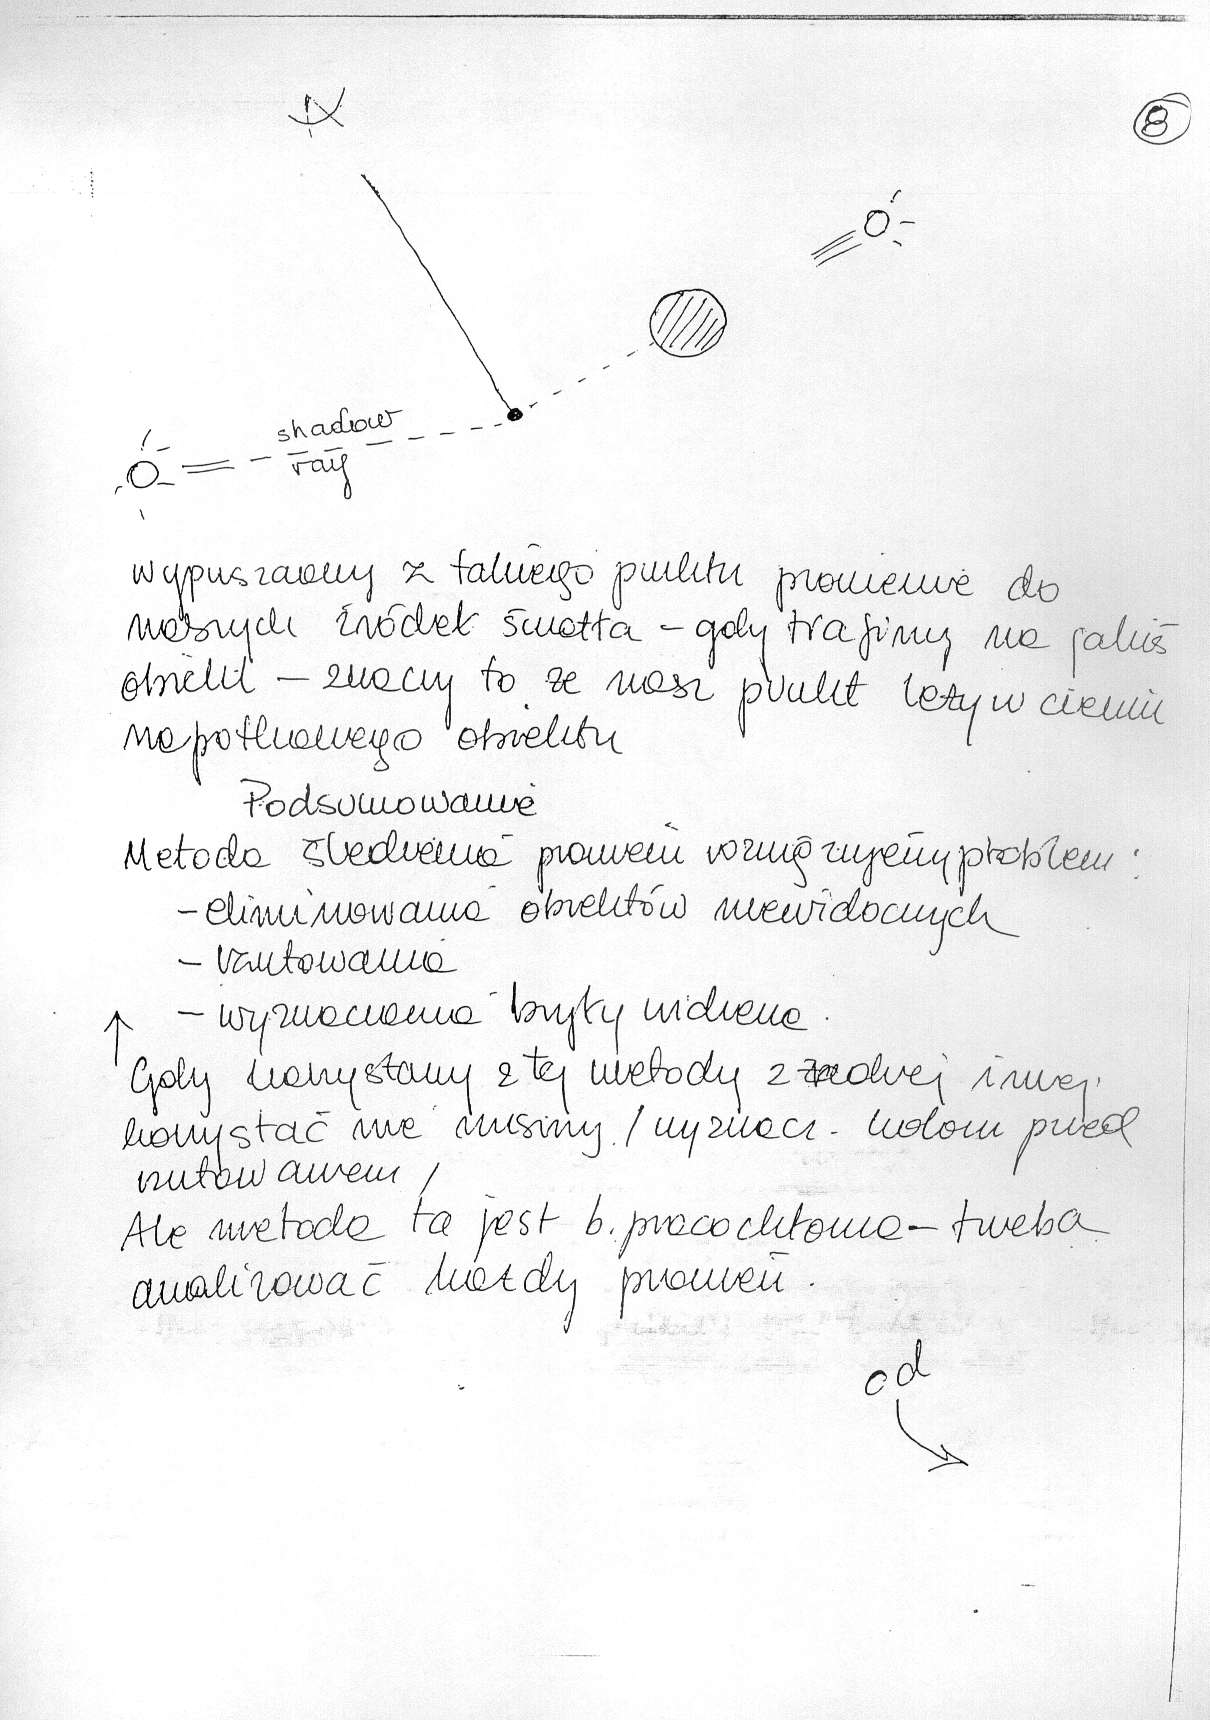 8
shadow
ray
wypuszczamy z takiego punktu promienie do
naszych źródeł światła – gdy trafimy na jakiś
obiekt – znaczy to że nasz punkt leży w cieniu
napotkanego obiektu
Podsumowanie
Metoda śledzenia promieni rozwiązujemy problem:
- eliminowania obiektów niewidocznych
- rzutowania
- wyznaczania bryły widzenia.
Gdy korzystamy z tej metody z żadnej innej
korzystać nie musimy / wyznacz. kolom przed
rzutowaniem /
Ale metoda ta jest b. pracochłonna – trzeba
analizować każdy promień.
cd